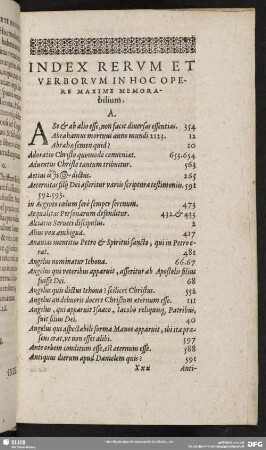 INDEX RERVM ET
VERBORVM IN HOC OPE-
RE MAXIME MEMORA-
bilium.
A.
A Se & ab alio esse, non facit diuersas essentias. 354
Abrahamus mortuus anno mundi 2123. 12
Abrahæ semen quid? 10
Adoratio Christo quomodo conueniat. 653.654
Aduentus Christo tantum tribuitur. 563
Aetius dictus. 265
Aeternitas filij Dei asseritur variis scripturæ testimoniis. 591
592.593.
in Aegypto cælum ferè semper serenum. 473
Aequalitas Personarum defenditur. 432. & 433
Alciatus Serueti discipulus. 2
Alius vox ambigua. 417
Ananias mentitus Petro & Spiritui sancto, qui in Petro e-
rat. 481
Angelus nominatur Iehoua. 66.67
Angelus qui veteribus apparuit, asseritur ab Apostolis filius
fuisse Dei. 68
Angelus quis dictus Iehoua? scilicet Christus. 552
Angelus an debuerit docere Christum æternum esse. 111
Angelus, qui apparuit Isaaco, Iacobo reliquisq́; Patribus,
fuit filius Dei. 40
Angelus qui aspectabili forma Manoæ apparuit, ibi ita præ-
sens erat, vt non esset alibi. 597
Ante orbem conditum esse, est æternum esse. 588
Antiquus dierum apud Danielem quis? 591
Xxx Anti-
SLUB
DFG